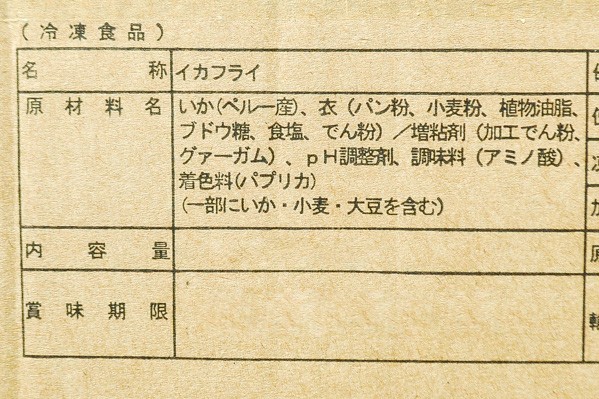 (冷凍食品)
名称 イカフライ
原材料名 いか(ペルー産)、衣(パン粉、小麦粉、植物油脂、
ブドウ糖、食塩、でん粉)／増粘剤(加工でん粉、
グァーガム)、pH調整剤、調味料(アミノ酸)、
着色料(パプリカ)
(一部にいか・小麦・大豆を含む)
内容量
賞味期限